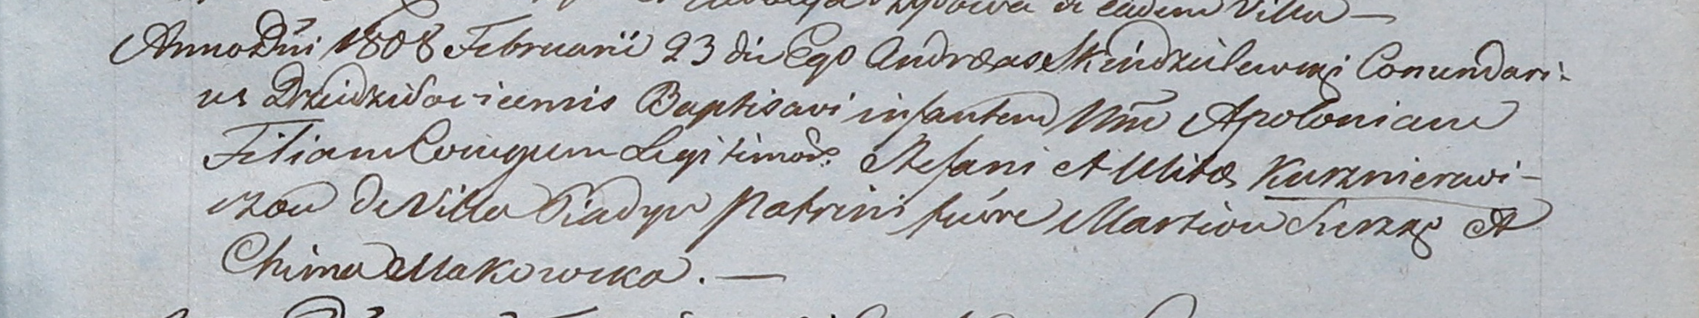 de eadem Villa —
Anno Dñi 1808 Februarii 23 die Ego Andreas Skindzielewski Comendari-
us Dziedziłovicensis Baptisavi infantem Nne Apoloniam
Filiam Coniugum Legitimor: Stefani et Ulitæ Kusznierewi-
czow de Villa Patrini fuere Martion Suszko et
Chima Makowska. —